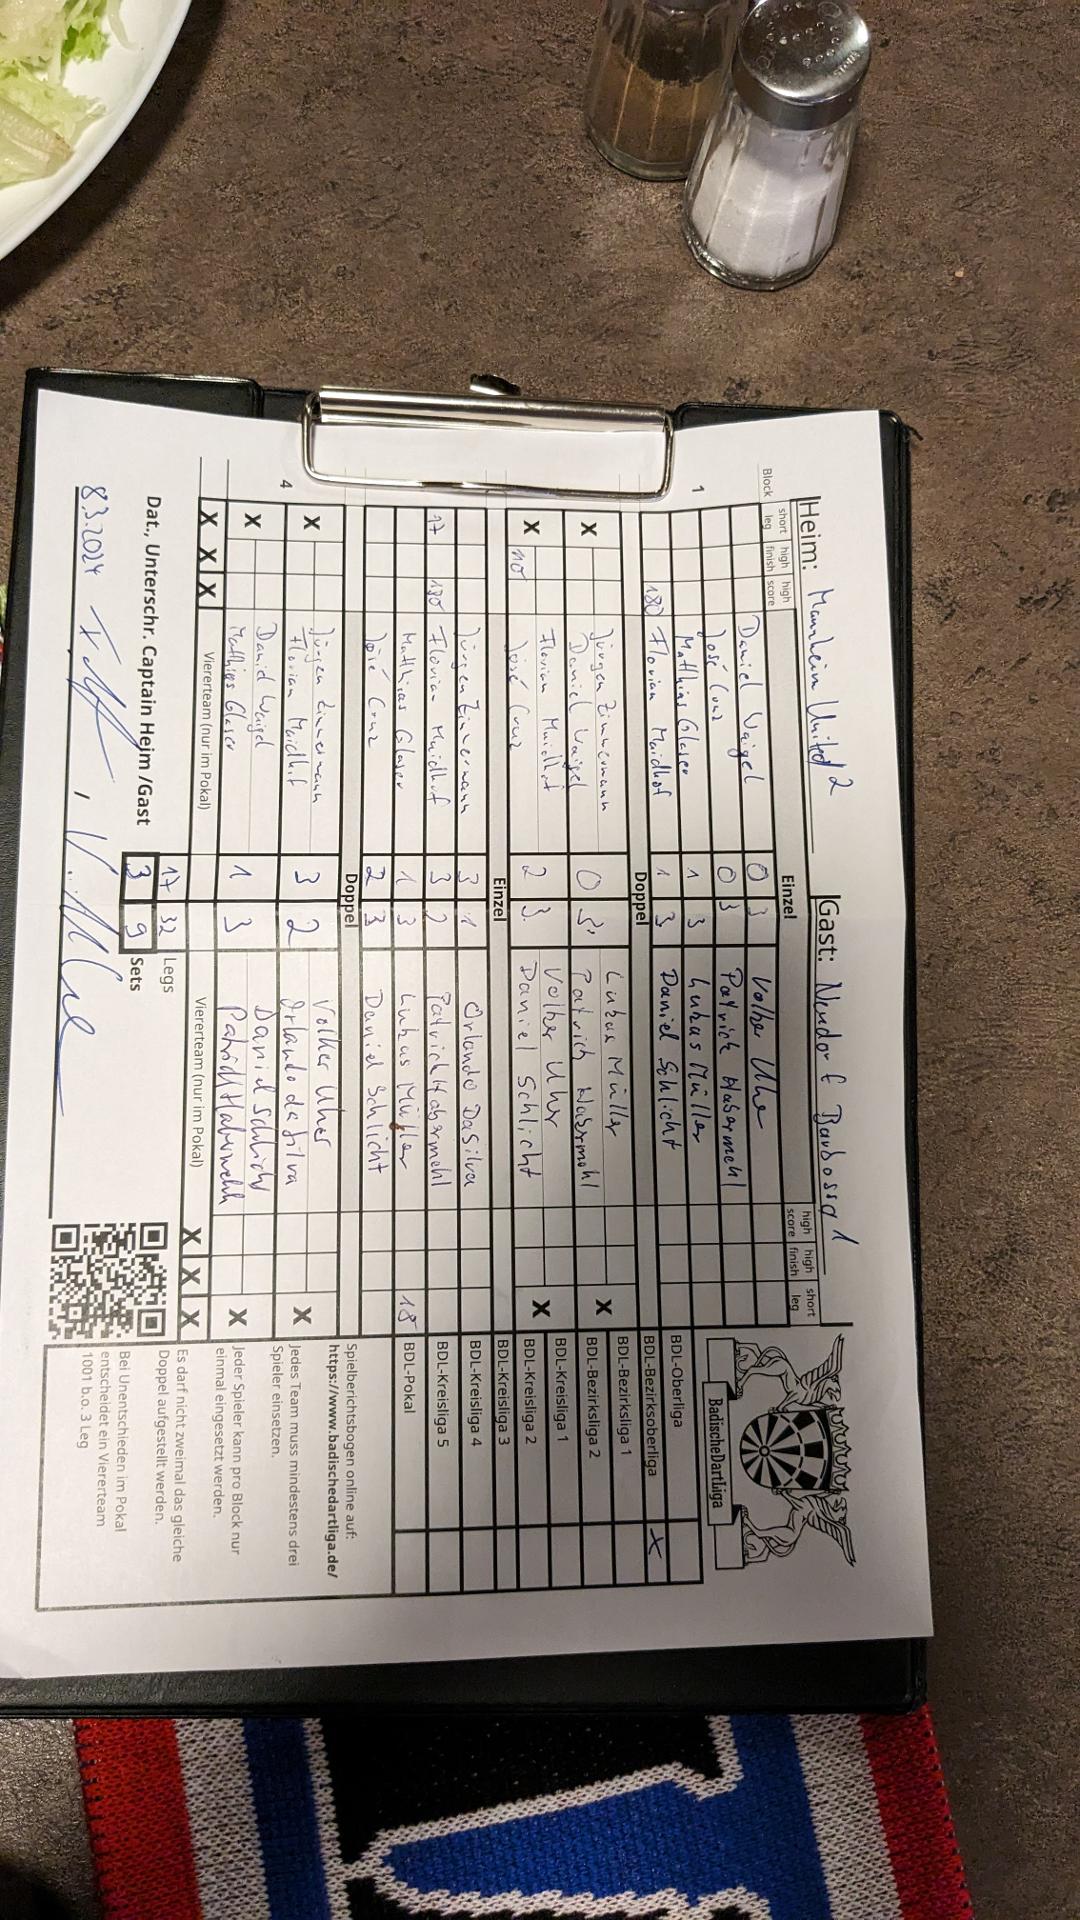 Heim: Mannheim United 2
Gast: Neudorf Barbossa 1
Block short leg high finish high score Einzel high score high finish short leg
1
Daniel Waigel 0 3 Volker Uhe
José Cruz 0 3 Patrick Habermehl
Matthias Glaser 1 3 Lukas Müller
180 Florian Maidhof 1 3 Daniel Schlicht
Doppel
X Jürgen Zimmermann 0 3 Lukas Müller X
Daniel Waigel Patrich Habermehl
X Florian Maidhof 2 3 Volker Uher X
José Cruz Daniel Schlicht
Einzel
Jürgen Zimmermann 3 1 Orlando Da Silva
17 180 Florian Maidhof 3 2 Patrick Habermehl
Matthias Glaser 1 3 Lukas Müller 18
José Cruz 2 3 Daniel Schlicht
Doppel
4
X Jürgen Zimmermann 3 2 Volker Uher X
Florian Maidhof Orlando da Silva
X Daniel Waigel 1 3 Daniel Schlicht X
Matthias Glaser Patrick Habermehl
X X X Viererteam (nur im Pokal) Viererteam (nur im Pokal) X X X
17 32 Legs
Dat., Unterschr. Captain Heim /Gast 3 9 Sets
8.3.2024
BadischeDartLiga
BDL-Oberliga
BDL-Bezirksoberliga X
BDL-Bezirksliga 1
BDL-Bezirksliga 2
BDL-Kreisliga 1
BDL-Kreisliga 2
BDL-Kreisliga 3
BDL-Kreisliga 4
BDL-Kreisliga 5
BDL-Pokal
Spielberichtsbogen online auf:
https://www.badischedartliga.de/
Jedes Team muss mindestens drei
Spieler einsetzen.
Jeder Spieler kann pro Block nur
einmal eingesetzt werden.
Es darf nicht zweimal das gleiche
Doppel aufgestellt werden.
Bei Unentschieden im Pokal
entscheidet ein Viererteam
1001 b.o. 3 Leg